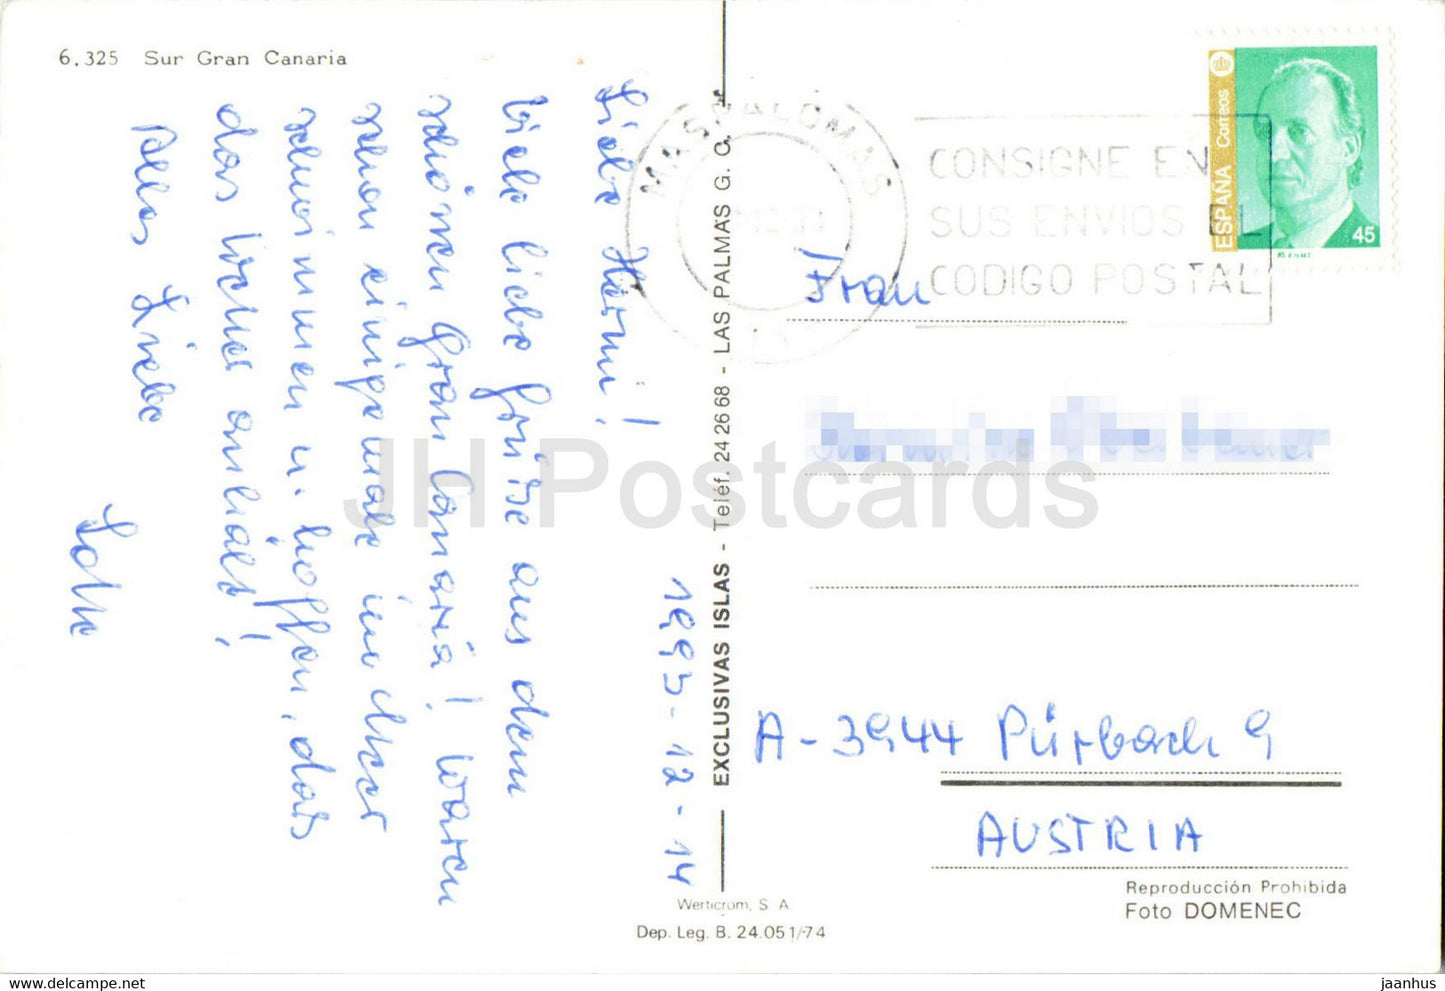 6.325 Sur Gran Canaria
1993-12-14
Liebe Hermi!
Viele liebe Grüße aus dem
schönen Gran Canaria! Waren
schon einige male im Meer
schwimmen u. hoffen, das
das Wetter anhält!
Alles Liebe
Lotte
EXCLUSIVAS ISLAS - Teléf. 24 26 68 - LAS PALMAS G. C.
Werticrom, S. A
Dep. Leg. B. 24.051/-74
MASPALOMAS
CONSIGNE EN
SUS ENVIOS EL
CODIGO POSTAL
ESPAÑA Correos
45
R.C.F.N.M.T
Frau
A-3944 Pürbach 9
AUSTRIA
Reproducción Prohibida
Foto DOMENEC
JH Postcards
jaanhus